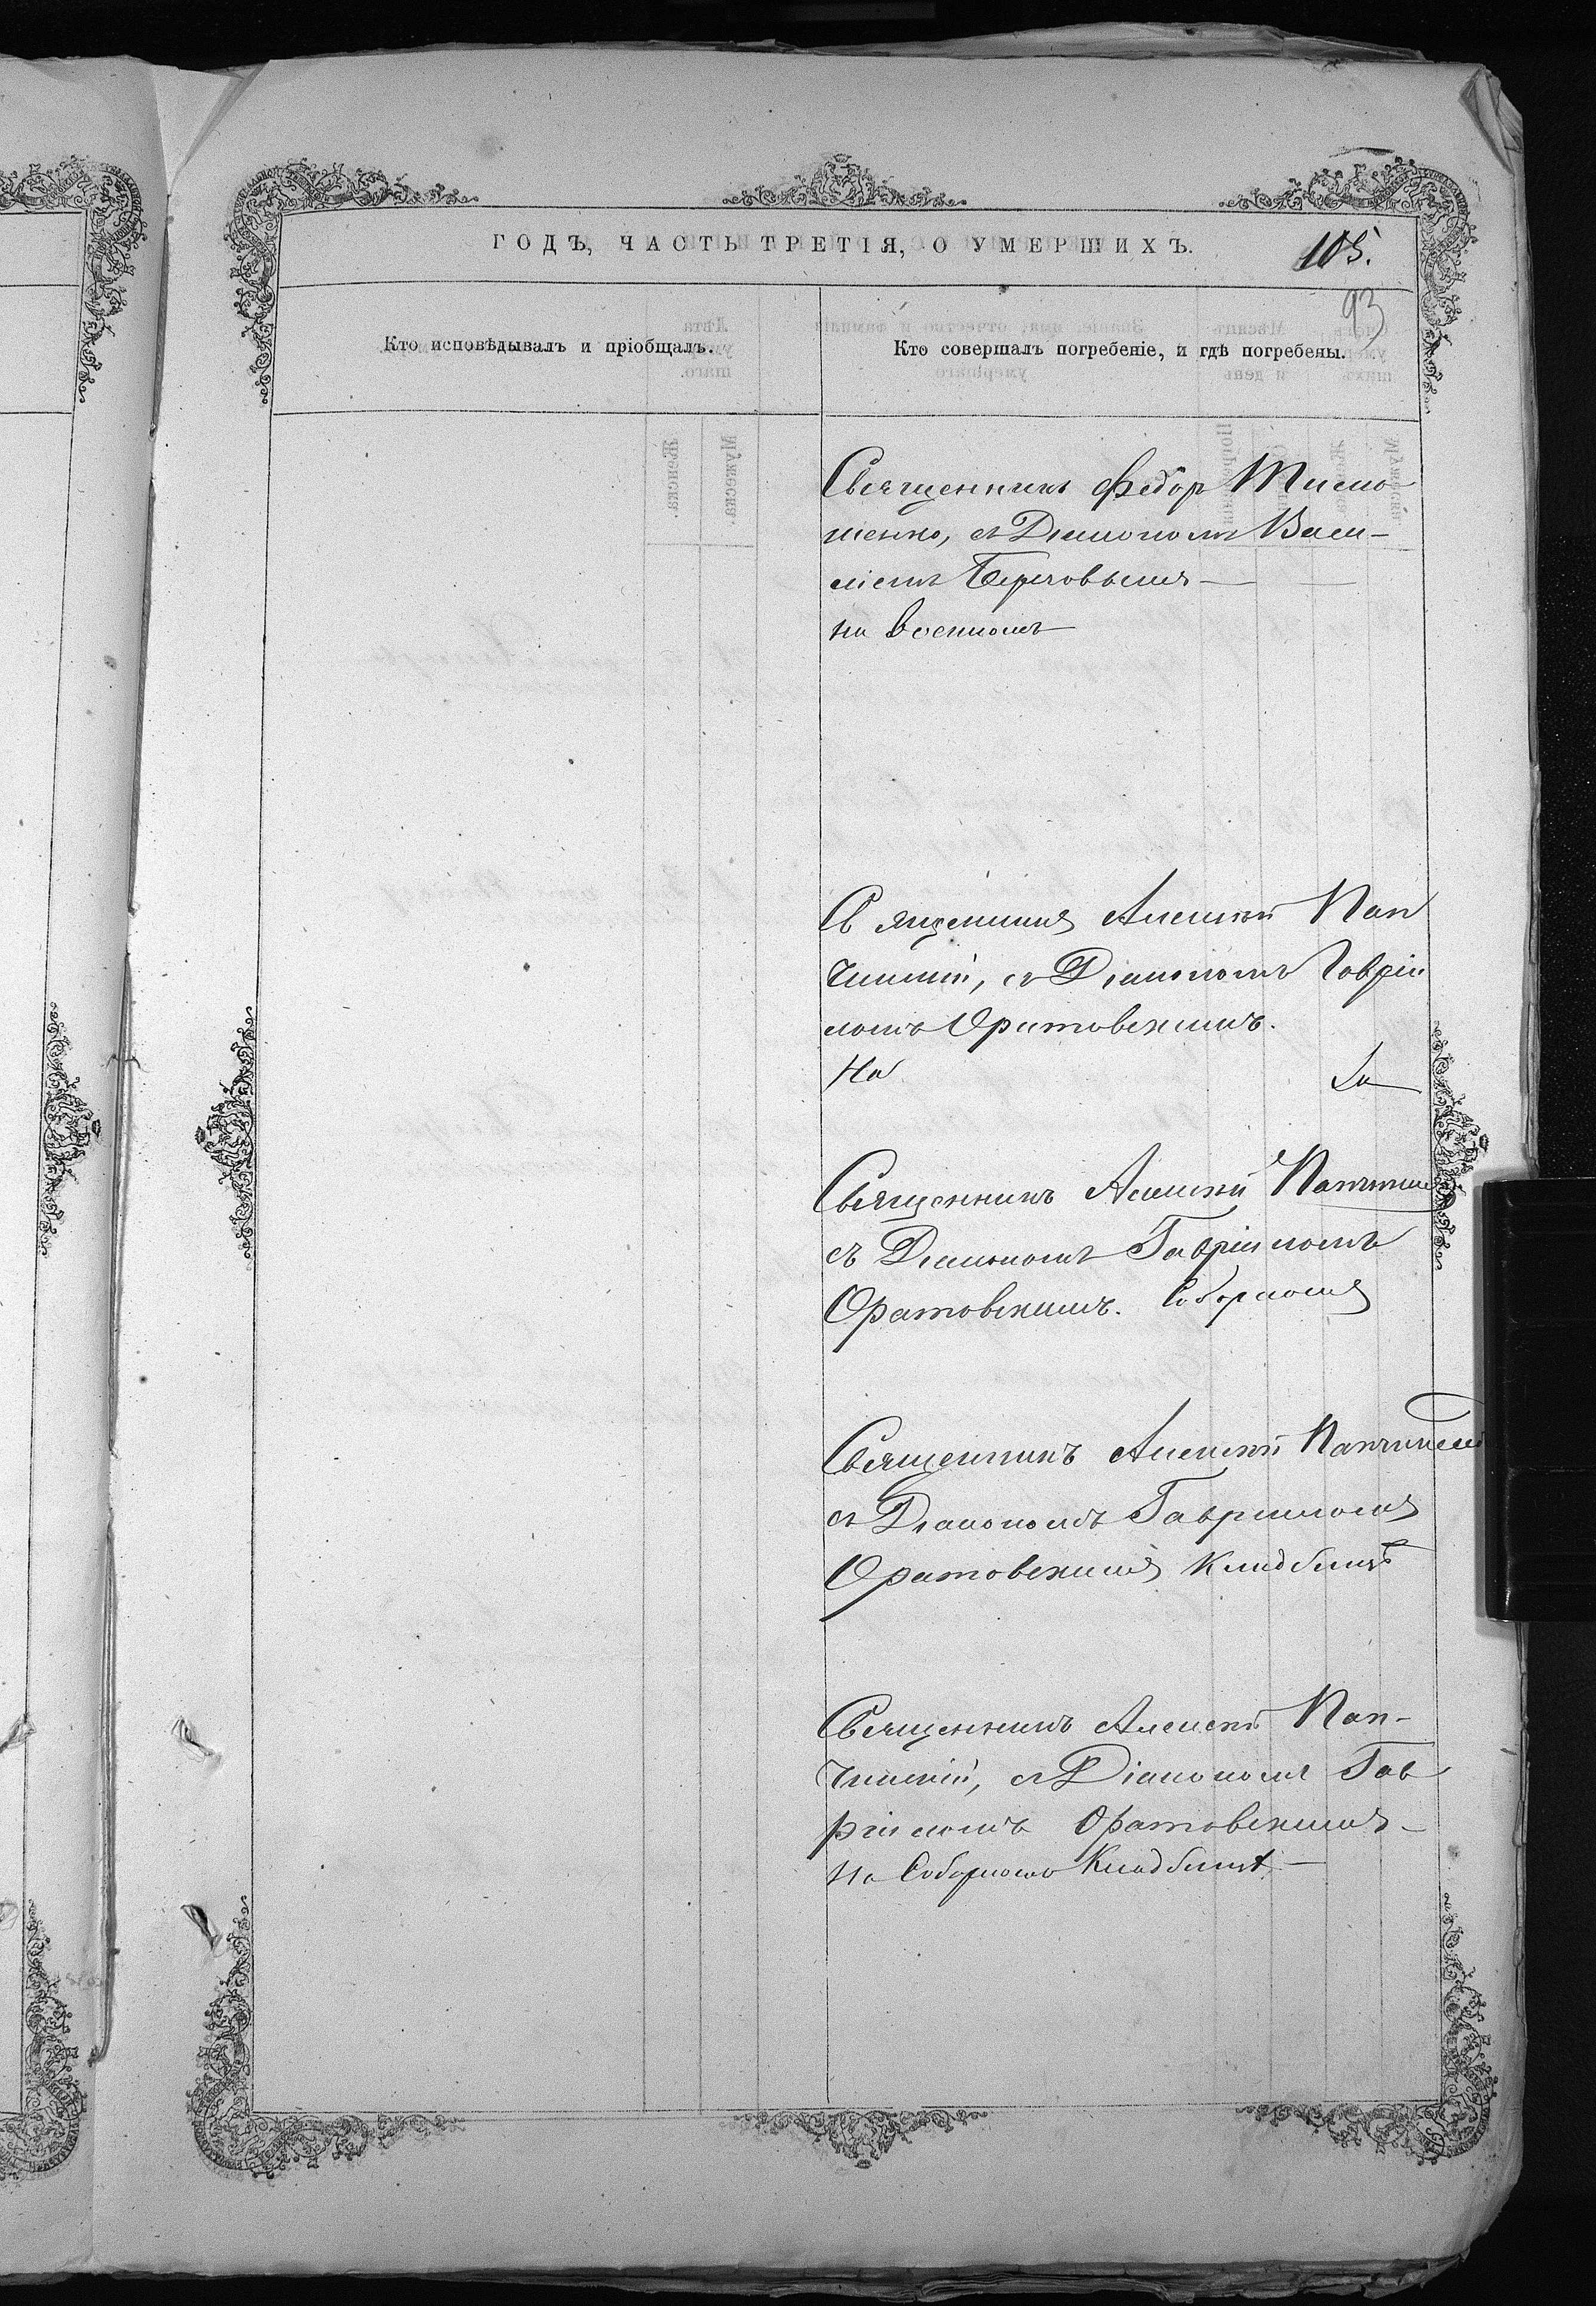 ГОДЪ, ЧАСТЬ ТРЕТІЯ, О УМЕРШИХЪ.
105.
93
Кто исповѣдывалъ и пріобщалъ.
Кто совершалъ погребеніе, и гдѣ погребены.
Священникъ Федор Тимо-
шенко, съ Діакономъ Васи-
ліемъ
на Военномъ
Священникъ Алексѣй Пап
чинскій, съ Діакономъ Гавріи
ломъ Оратовскимъ.
На
Священникъ Алексѣй
съ Діакономъ Гавріиломъ
Оратовскимъ. Соборномъ
Священникъ Алексѣй Папчинскій
съ Діакономъ Гавриломъ
Оратовскимъ Кладбищѣ
Священникъ Алексѣй Пап-
чинскій, съ Діакономъ Гав
ріиломъ Оратовскимъ-
На Соборномъ Кладбищѣ.